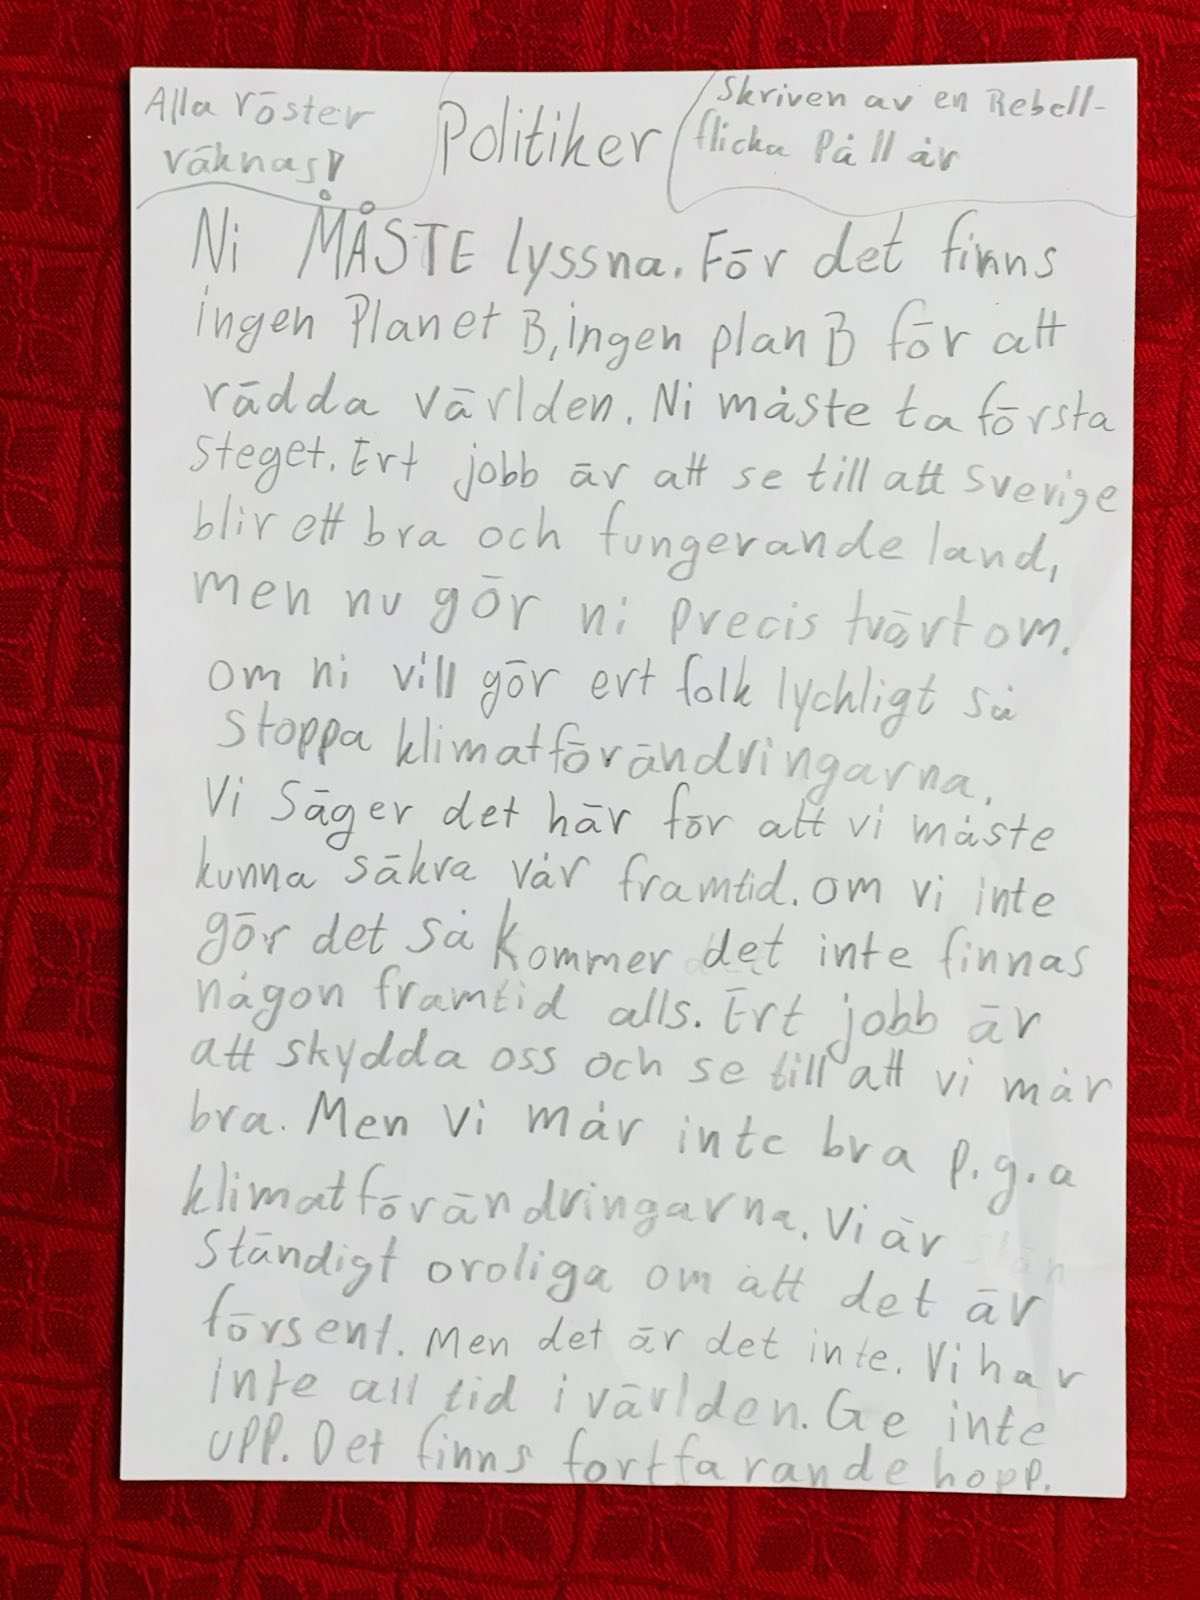 Alla röster
räknas!
Politiker
Skriven av en Rebell-
flicka på 11 år
Ni MÅSTE lyssna. För det finns
ingen Planet B, ingen plan B för att
rädda världen. Ni måste ta första
steget. Ert jobb är att se till att Sverige
blir ett bra och fungerande land,
men nu gör ni precis tvärt om.
om ni vill gör ert folk lychligt så
stoppa klimatförändringarna.
Vi säger det här för att vi måste
kunna säkra vår framtid. om vi inte
gör det så kommer det inte finnas
någon framtid alls. Ert jobb är
att skydda oss och se till att vi mår
bra. Men vi mår inte bra p.g.a
klimatförändringarna. Vi är
ständigt oroliga om att det är
försent. Men det är det inte. Vi har
inte all tid i världen. Ge inte
upp. Det finns fortfarande hopp.